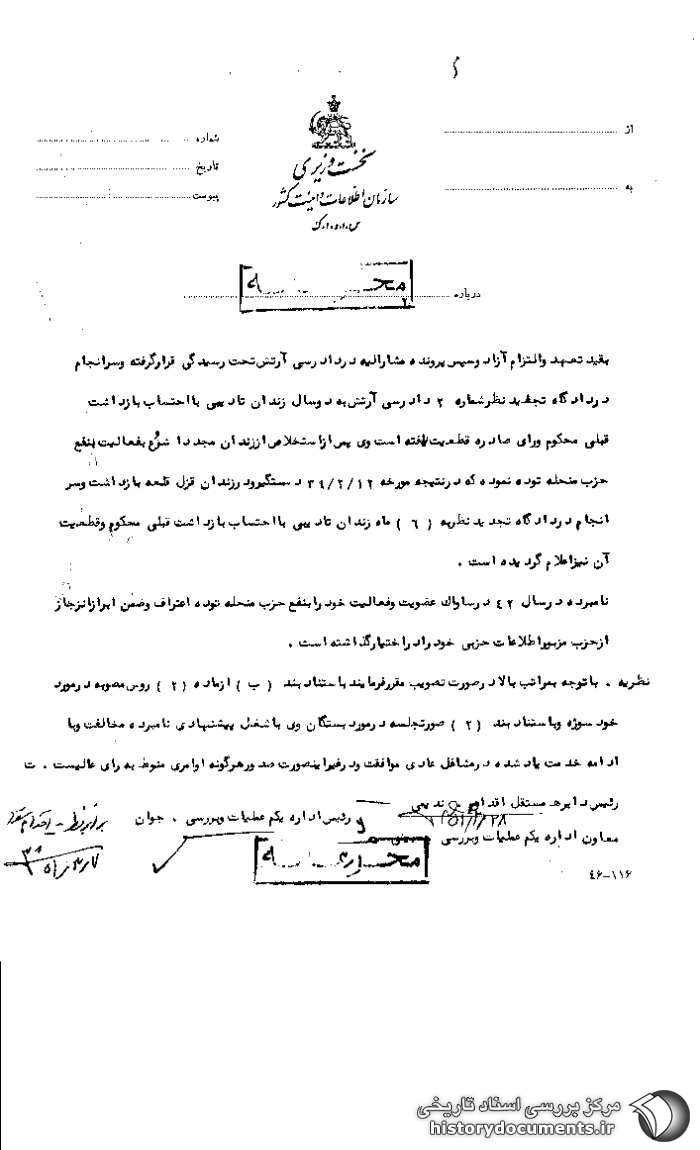 از
به
نخست وزیری
سازمان اطلاعات و امنیت کشور
س.ا.و.ا.ک
شماره
تاریخ
پیوست
درباره
محرمانه
بقید تعهد والتزام آزاد وسپس پرونده مشارالیه در دادرسی آرتش تحت رسیدگی قرار گرفته وسرانجام
در دادگاه تجدید نظر شماره ۲ دادرسی آرتش به دوسال زندان تادیبی با احتساب بازداشت
قبلی محکوم ورای صادره قطعیت یافته است وی پس از استخلاص از زندان مجددا شروع بفعالیت بنفع
حزب منحله توده نموده که در نتیجه مورخه ۳۹/۲/۱۲ دستگیر ودر زندان قزل قلعه بازداشت وسر
انجام در دادگاه تجدید نظر به ( ۶ ) ماه زندان تادیبی با احتساب بازداشت قبلی محکوم وقطعیت
آن نیز اعلام گردیده است .
نامبرده در سال ۴۲ در ساواک عضویت وفعالیت خود را بنفع حزب منحله توده اعتراف وضمن ابراز انزجار
از حزب مزبور اطلاعات حزبی خود را در اختیار گذاشته است .
نظریه . با توجه بمراتب بالا در صورت تصویب مقرر فرمایند باستناد بند ( ب ) از ماده ( ۲ ) روس مصوبه در مورد
خود سوژه وباستناد بند ( ۲ ) صورتجلسه در مورد بستگان وی با شغل پیشنهادی نامبرده مخالفت وبا
ادامه خدمت یاد شده در مشاغل عادی موافقت ودر غیر اینصورت صدور هرگونه اوامری منوط به رای عالیست . ت
رئیس دایره مستقل اقدام . ندیمی
رئیس اداره یکم عملیات وبررسی . جوان
معاون اداره یکم عملیات وبررسی
محرمانه
۴۶-۱۱۶
مرکز بررسی اسناد تاریخی
historydocuments.ir